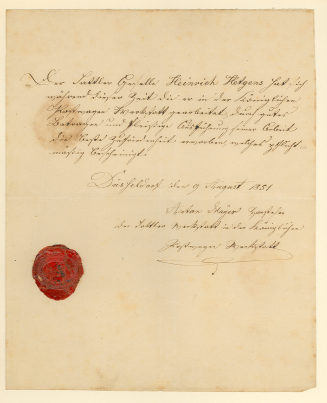 Der Sattler Geselle Heinrich Hetgens hat sich
während dieser Zeit die er in der Königlichen
Postwagen Werkstatt gearbeitet, durch gutes
Betragen und fleißige Ausführung seiner Arbeit
die beste Zufriedenheit erworben, welches pflicht-
mäßig bescheinigt
Düsseldorf den 9 August 1851
Anton
der Sattler Werkstatt in der Königlichen
Postwagen Werkstatt